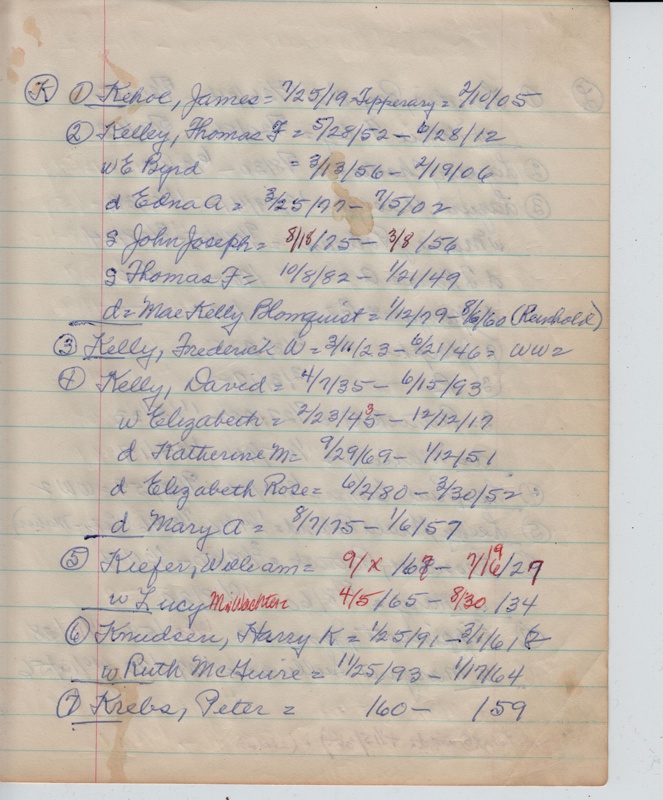 (K) (1) Kehoe, James = 7/25/19 - Tipperary = 2/10/05
(2) Kelley, Thomas F = 5/28/52 - 6/28/12
w E Byrd = 3/13/56 - 2/19/06
d Edna A = 3/25/77 - 7/5/02
s John Joseph = 8/18/75 - 3/8/56
s Thomas F = 10/8/82 - 1/21/49
d = Mae Kelly Blomquist = 1/12/79 - 8/6/60 (Reinhold)
(3) Kelly, Frederick W = 3/11/23 - 6/21/46 = WW2
(4) Kelly, David = 4/7/35 - 6/15/93
w Elizabeth = 2/23/43 - 12/12/17
d Katherine M = 9/29/69 - 1/12/51
d Elizabeth Rose = 6/2/80 - 3/30/52
d Mary A = 8/7/75 - 1/6/57
(5) Kiefer, William = 9/x/67 - 7/19/29
w Lucy M. Wachter 4/5/65 - 8/30/34
(6) Knudsen, Harry K = 1/25/91 - 3/1/62
w Ruth McGuire = 11/25/93 - 1/17/64
(7) Krebs, Peter = /60 - /59